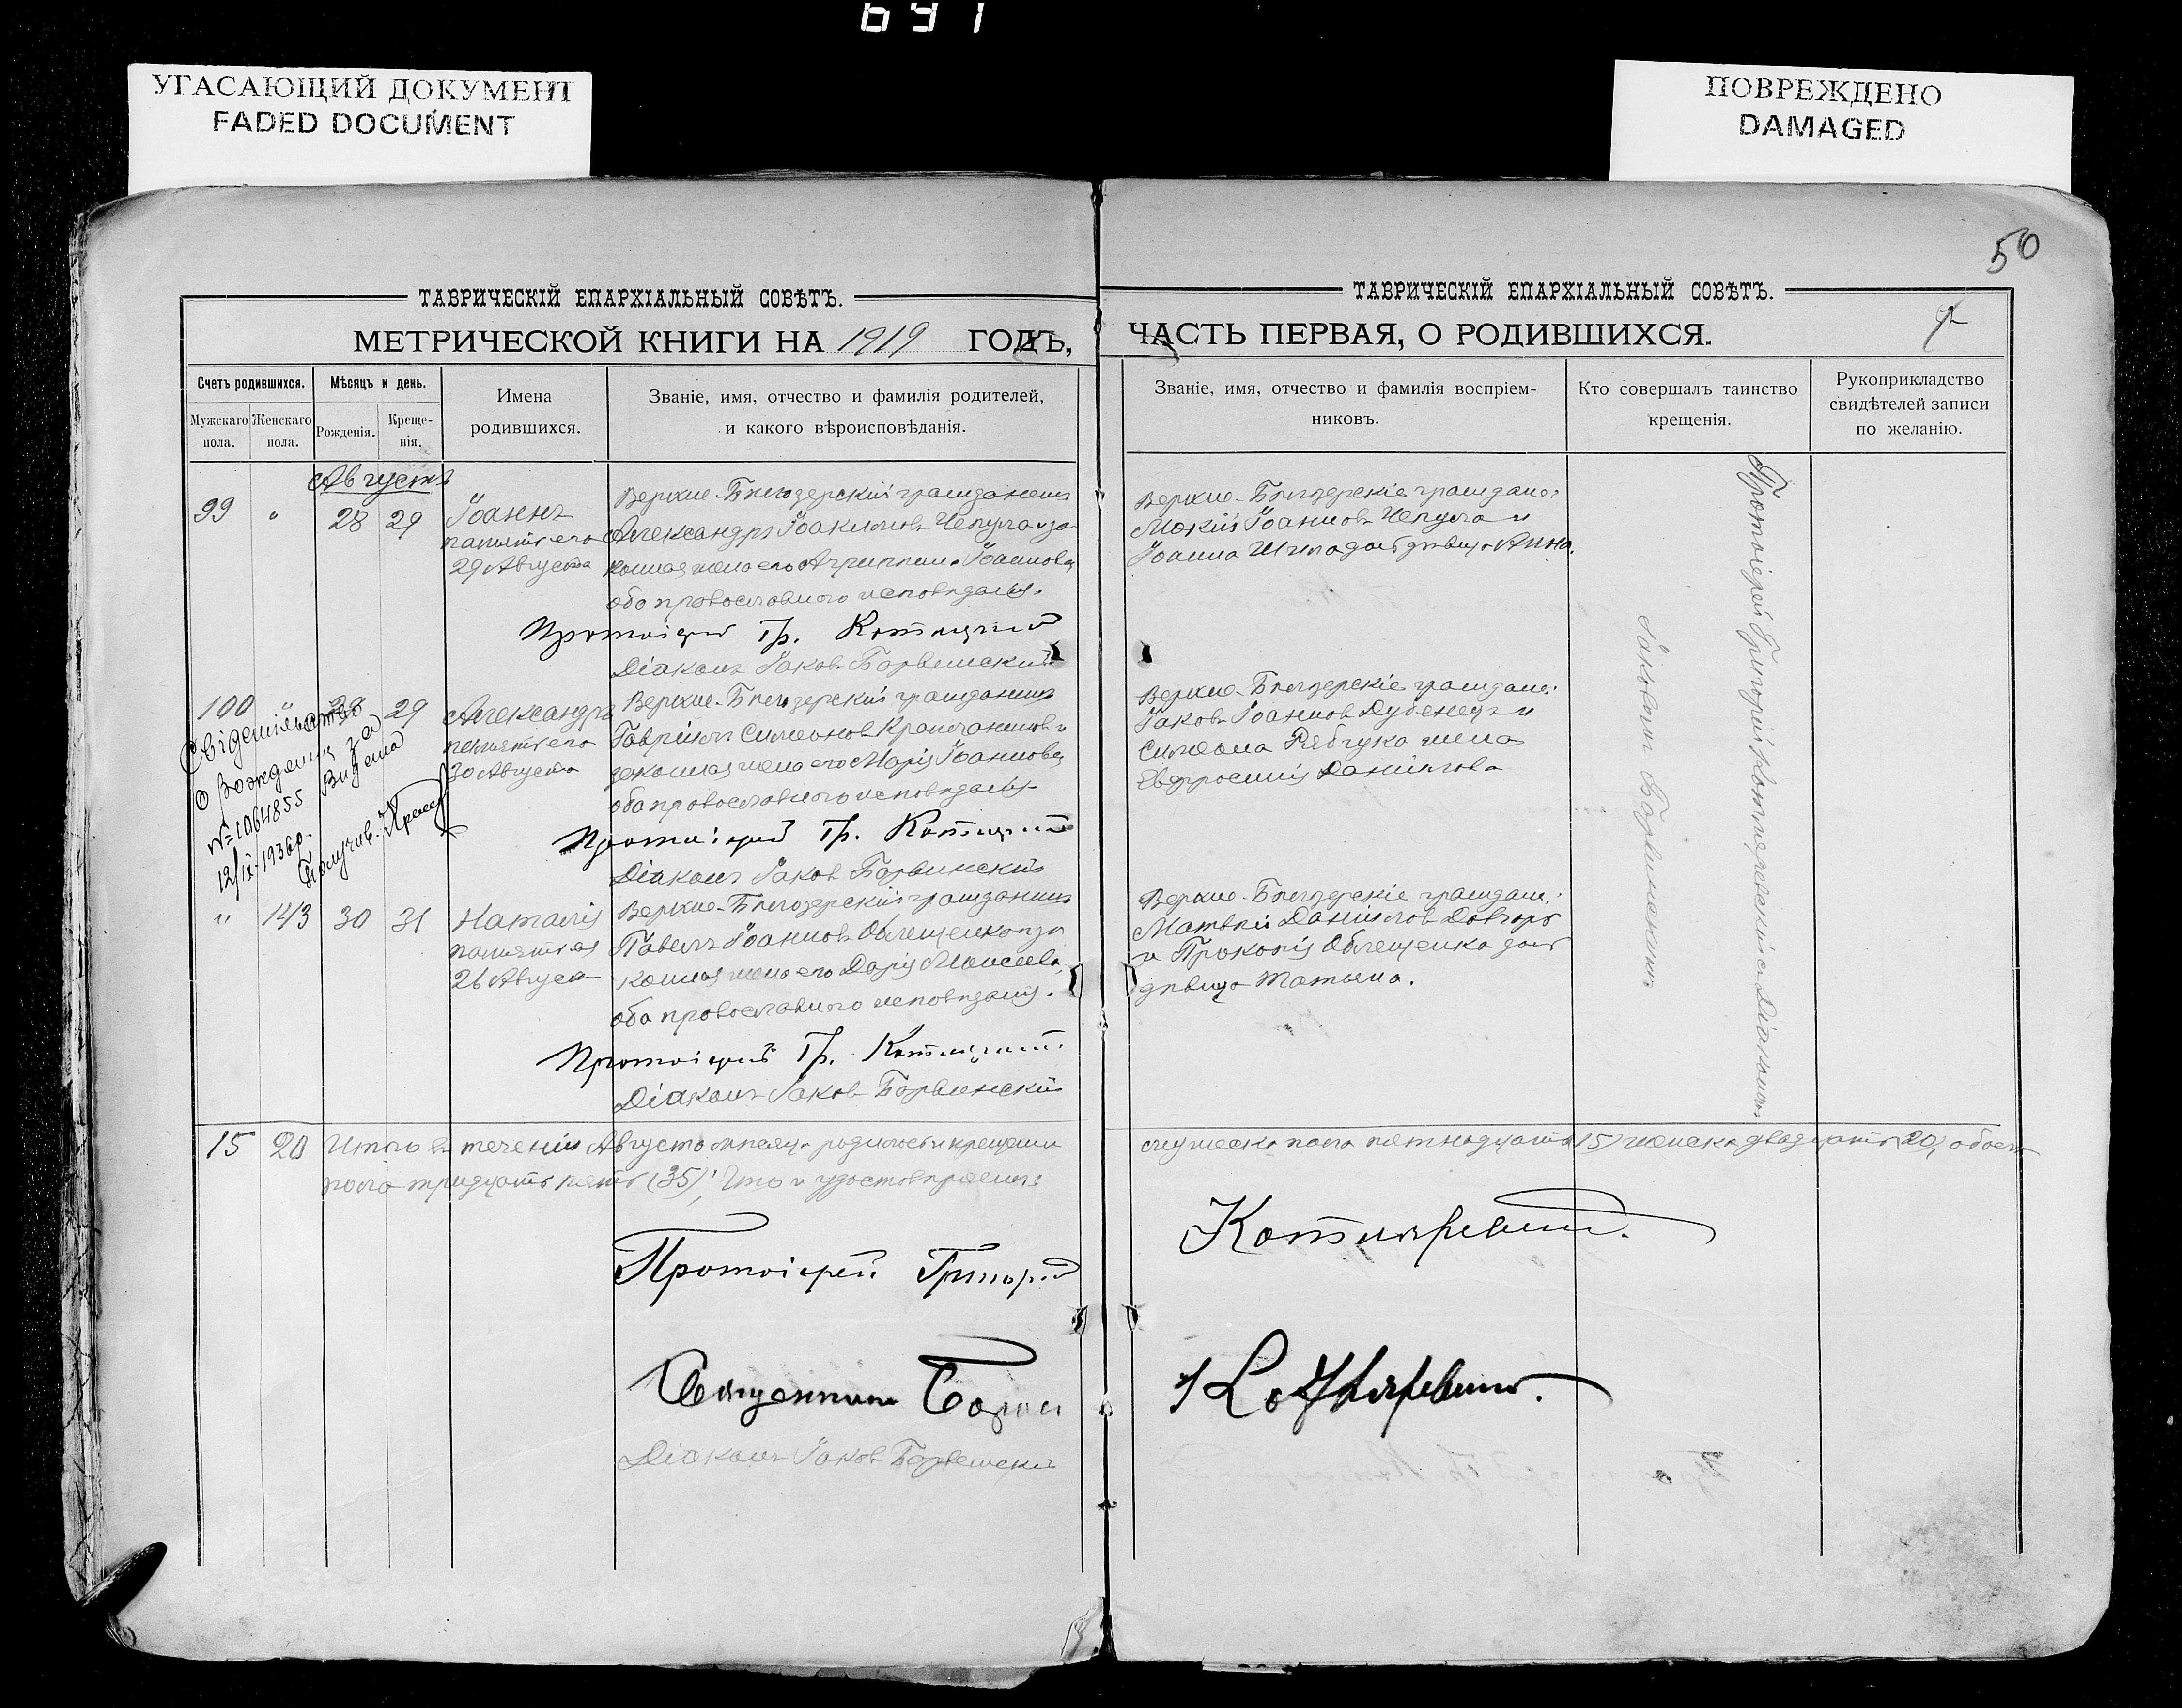 691
УГАСАЮЩИЙ ДОКУМЕНТ
FADED DOCUMENT
ПОВРЕЖДЕНО
DAMAGED
50
ТАВРИЧЕСКІЙ ЕПАРХІАЛЬНЫЙ СОВѢТЪ.
МЕТРИЧЕСКОЙ КНИГИ НА 1919 ГОДЪ,
Счетъ родившихся.
Мужскаго пола.
Женскаго пола.
Мѣсяцъ и день.
Рожденія.
Креще-
нія.
Имена
родившихся.
Званіе, имя, отчество и фамилія родителей,
и какого вѣроисповѣданія.
Августъ
99 " 28 29
Іоаннъ
память его
29 Августа
Верхне-Бѣлозерскій гражданинъ
Александръ Іоакимовъ Чепула и за-
конная жена его Агриппина Іоаннова
оба православнаго исповѣданія.
Протоіерей Гр.
Діаконъ Іаковъ
100 " 28 29
Александръ
память его
30 Августа
Верхне-Бѣлозерскій гражданинъ
Гавріилъ Симеоновъ и
законная жена его Марія Іоаннова
оба православнаго исповѣданія
о рождении за
№ 1064855 Видена
12/IX-1936р.
Получив.
Протоіерей Гр.
Діаконъ Іаковъ
" 143 30 31
Наталія
память ея
26 Августа
Верхне-Бѣлозерскій гражданинъ
Павелъ Іоанновъ Облещенко и за-
конная жена его Дарія Моисеева
оба православнаго исповѣданія.
Протоіерей Гр.
Діаконъ Іаковъ
15 20 Итого въ теченіи Августа мѣсяца родилось и крещено
пола тридцать пять (35); Что и удостовѣряемъ:
Протоіерей Григорій
Священникъ Борис
Діаконъ Іаковъ
ТАВРИЧЕСКІЙ ЕПАРХІАЛЬНЫЙ СОВѢТЪ.
ЧАСТЬ ПЕРВАЯ, О РОДИВШИХСЯ.
Званіе, имя, отчество и фамилія воспріем-
никовъ.
Кто совершалъ таинство
крещенія.
Рукоприкладство
свидѣтелей записи
по желанію.
Верхне-Бѣлозерскіе граждане:
Мокій Іоанновъ Чепула и
Іоанна Шила дочь дѣвица Анна.
Верхне-Бѣлозерскіе граждане:
Іаковъ Іоанновъ Дубенецъ и
Симеона Рябчука жена
Евфросинія Даніилова
Верхне-Бѣлозерскіе граждане:
Матвѣй Даніиловъ Довгоръ
и Прокопія Облещенка дочь
дѣвица Татьяна.
Протоіерей Григорій Котляревскій съ Діакономъ
Іаковомъ
мужеска пола пятнадцать (15) женска двадцать (20), обоего
Котляревскій.
Котляревскій.